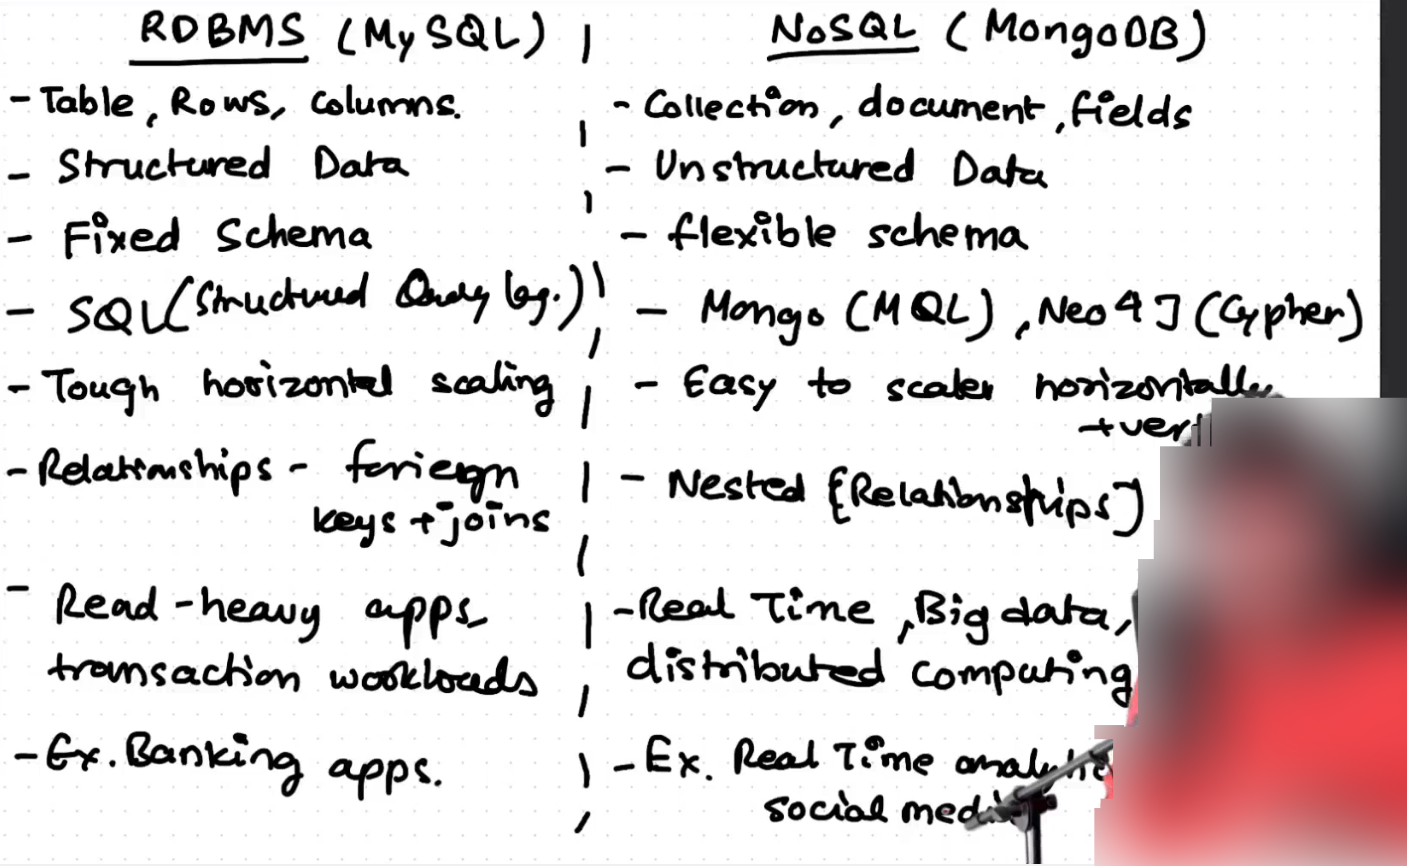 RDBMS (MySQL)
- Table, Rows, Columns.
- Structured Data
- Fixed Schema
- SQL (Structured Query lag.)
- Tough horizontal scaling
- Relationships - foriegn
keys + joins
- Read-heavy apps
transaction workloads
- Ex. Banking apps.
NoSQL (MongoDB)
- Collection, document, fields
- Unstructured Data
- flexible schema
- Mongo (MQL), Neo4J (Cypher)
- Easy to scaler horizontally
+ ver
- Nested {Relationships]
- Real Time, Big data,
distributed computing
- Ex. Real Time
social